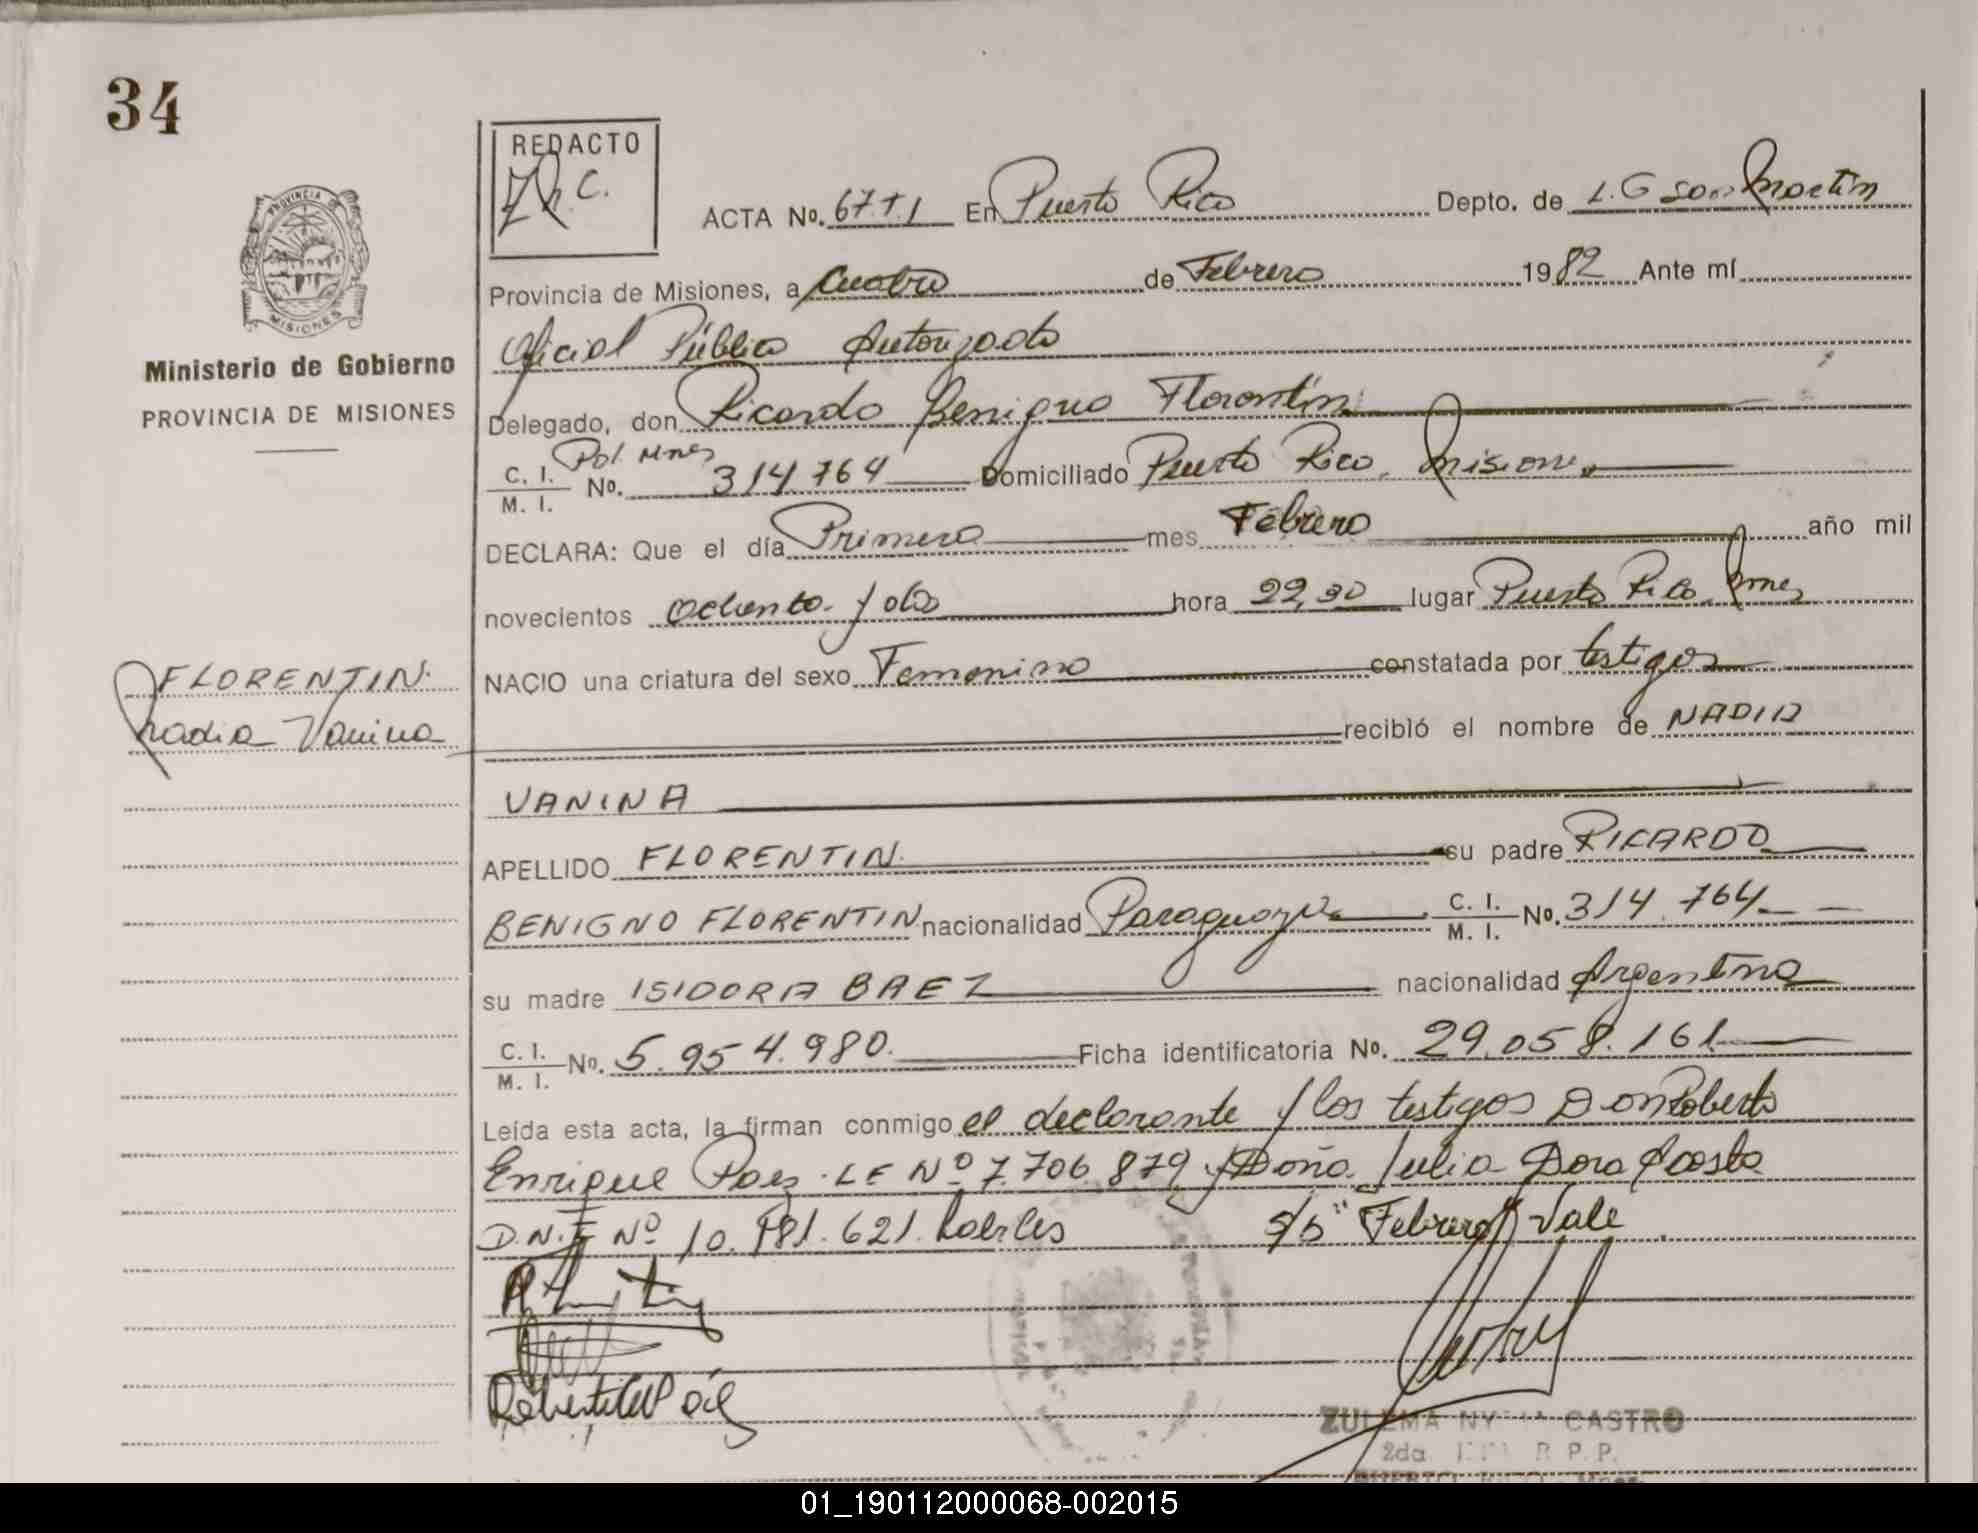 34
REDACTO
Z.N.C.
ACTA No. 67.T.I En Puerto Rico Depto. de L.G San Martín
Provincia de Misiones, a Cuatro de Febrero 1982 Ante mí
Oficial Público Autorizado
Delegado, don Ricardo Benigno Florentín
C. I. Pol Mnes
M. I. No. 314.764 Domiciliado Puerto Rico, Misiones
DECLARA: Que el día Primero mes Febrero año mil
novecientos ochenta y dos hora 22,30 lugar Puerto Rico Mnes
NACIO una criatura del sexo Femenino constatada por testigos
recibió el nombre de NADIA
VANINA
APELLIDO FLORENTIN su padre RICARDO
BENIGNO FLORENTIN nacionalidad Paraguaya C. I. M. I. No. 314.764
su madre ISIDORA BAEZ nacionalidad Argentina
C. I. M. I. No. 5.954.980. Ficha identificatoria No. 29.058.161
Leída esta acta, la firman conmigo el declarante y los testigos Don Roberto
Enrique Paez. LE Nº 7.706.879 y Doña Julia Dora Acosta
D.N.I Nº 10.981.621. hábiles s/b "Febrero" Vale
ZULEMA CASTRO
2da R.P.P.
PUERTO RICO Mnes.
PROVINCIA DE
MISIONES
Ministerio de Gobierno
PROVINCIA DE MISIONES
FLORENTIN.
Nadia Vanina
01_190112000068-002015